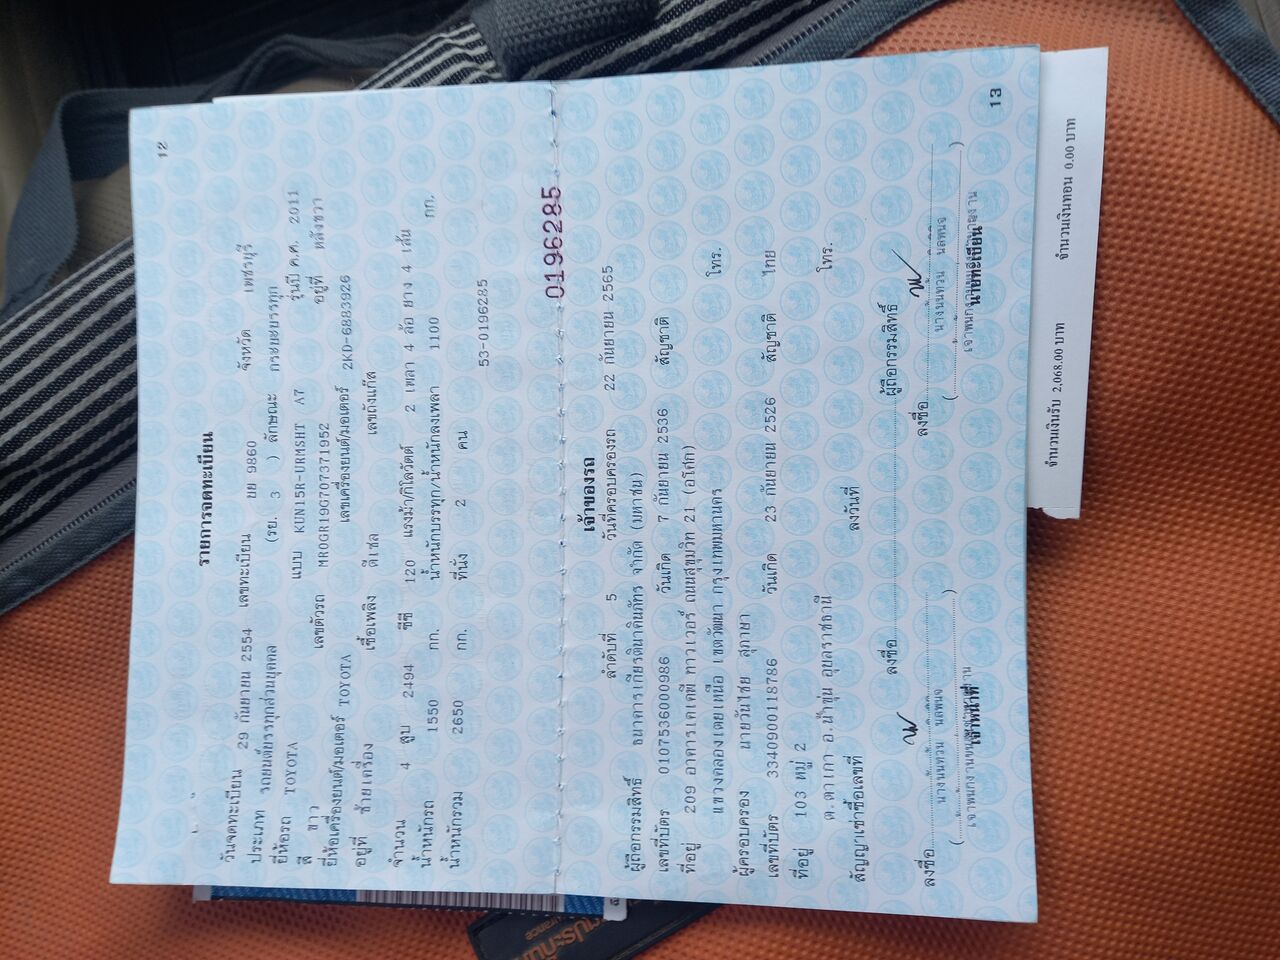 12
รายการจดทะเบียน
วันจดทะเบียน 29 กันยายน 2554 เลขทะเบียน บย 9860 จังหวัด เพชรบุรี
ประเภท รถยนต์บรรทุกส่วนบุคคล (รย. 3 ) ลักษณะ กระบะบรรทุก
ยี่ห้อรถ TOYOTA แบบ KUN15R-URMSHT A7 รุ่นปี ค.ศ. 2011
สี ขาว เลขตัวรถ MR0GR19G707371952 อยู่ที่ หลังขวา
ยี่ห้อเครื่องยนต์/มอเตอร์ TOYOTA เลขเครื่องยนต์/มอเตอร์ 2KD-6883926
อยู่ที่ ซ้ายเครื่อง เชื้อเพลิง ดีเซล เลขถังแก๊ส
จำนวน 4 สูบ 2494 ซีซี 120 แรงม้า/กิโลวัตต์ 2 เพลา 4 ล้อ ยาง 4 เส้น
น้ำหนักรถ 1550 กก. น้ำหนักบรรทุก/น้ำหนักลงเพลา 1100 กก.
น้ำหนักรวม 2650 กก. ที่นั่ง 2 คน
53-0196285
0196285
เจ้าของรถ
ลำดับที่ 5 วันที่ครอบครองรถ 22 กันยายน 2565
ผู้ถือกรรมสิทธิ์ ธนาคารเกียรตินาคินภัทร จำกัด (มหาชน)
เลขที่บัตร 0107536000986 วันเกิด 7 กันยายน 2536 สัญชาติ
ที่อยู่ 209 อาคารเคเคพี ทาวเวอร์ ถนนสุขุมวิท 21 (อโศก)
แขวงคลองเตยเหนือ เขตวัฒนา กรุงเทพมหานคร โทร.
ผู้ครอบครอง นายวันไชย สุภาษา
เลขที่บัตร 3340900118786 วันเกิด 23 กันยายน 2526 สัญชาติ ไทย
ที่อยู่ 103 หมู่ 2
ต.ตาเกา อ.น้ำขุ่น อุบลราชธานี โทร.
สัญญาเช่าซื้อเลขที่ ลงวันที่
ลงชื่อ ผู้ถือกรรมสิทธิ์
ลงชื่อ ลงชื่อ
นางนนทวน นลพนจ นางนนทวน นลพนจ
เจ้าหน้าที่ นายทะเบียน
13
จำนวนเงินรับ 2,068.00 บาท จำนวนเงินทอน 0.00 บาท